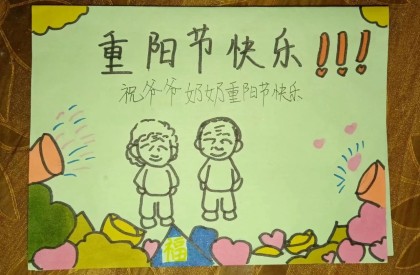 重阳节快乐!!!
祝爷爷奶奶重阳节快乐
福